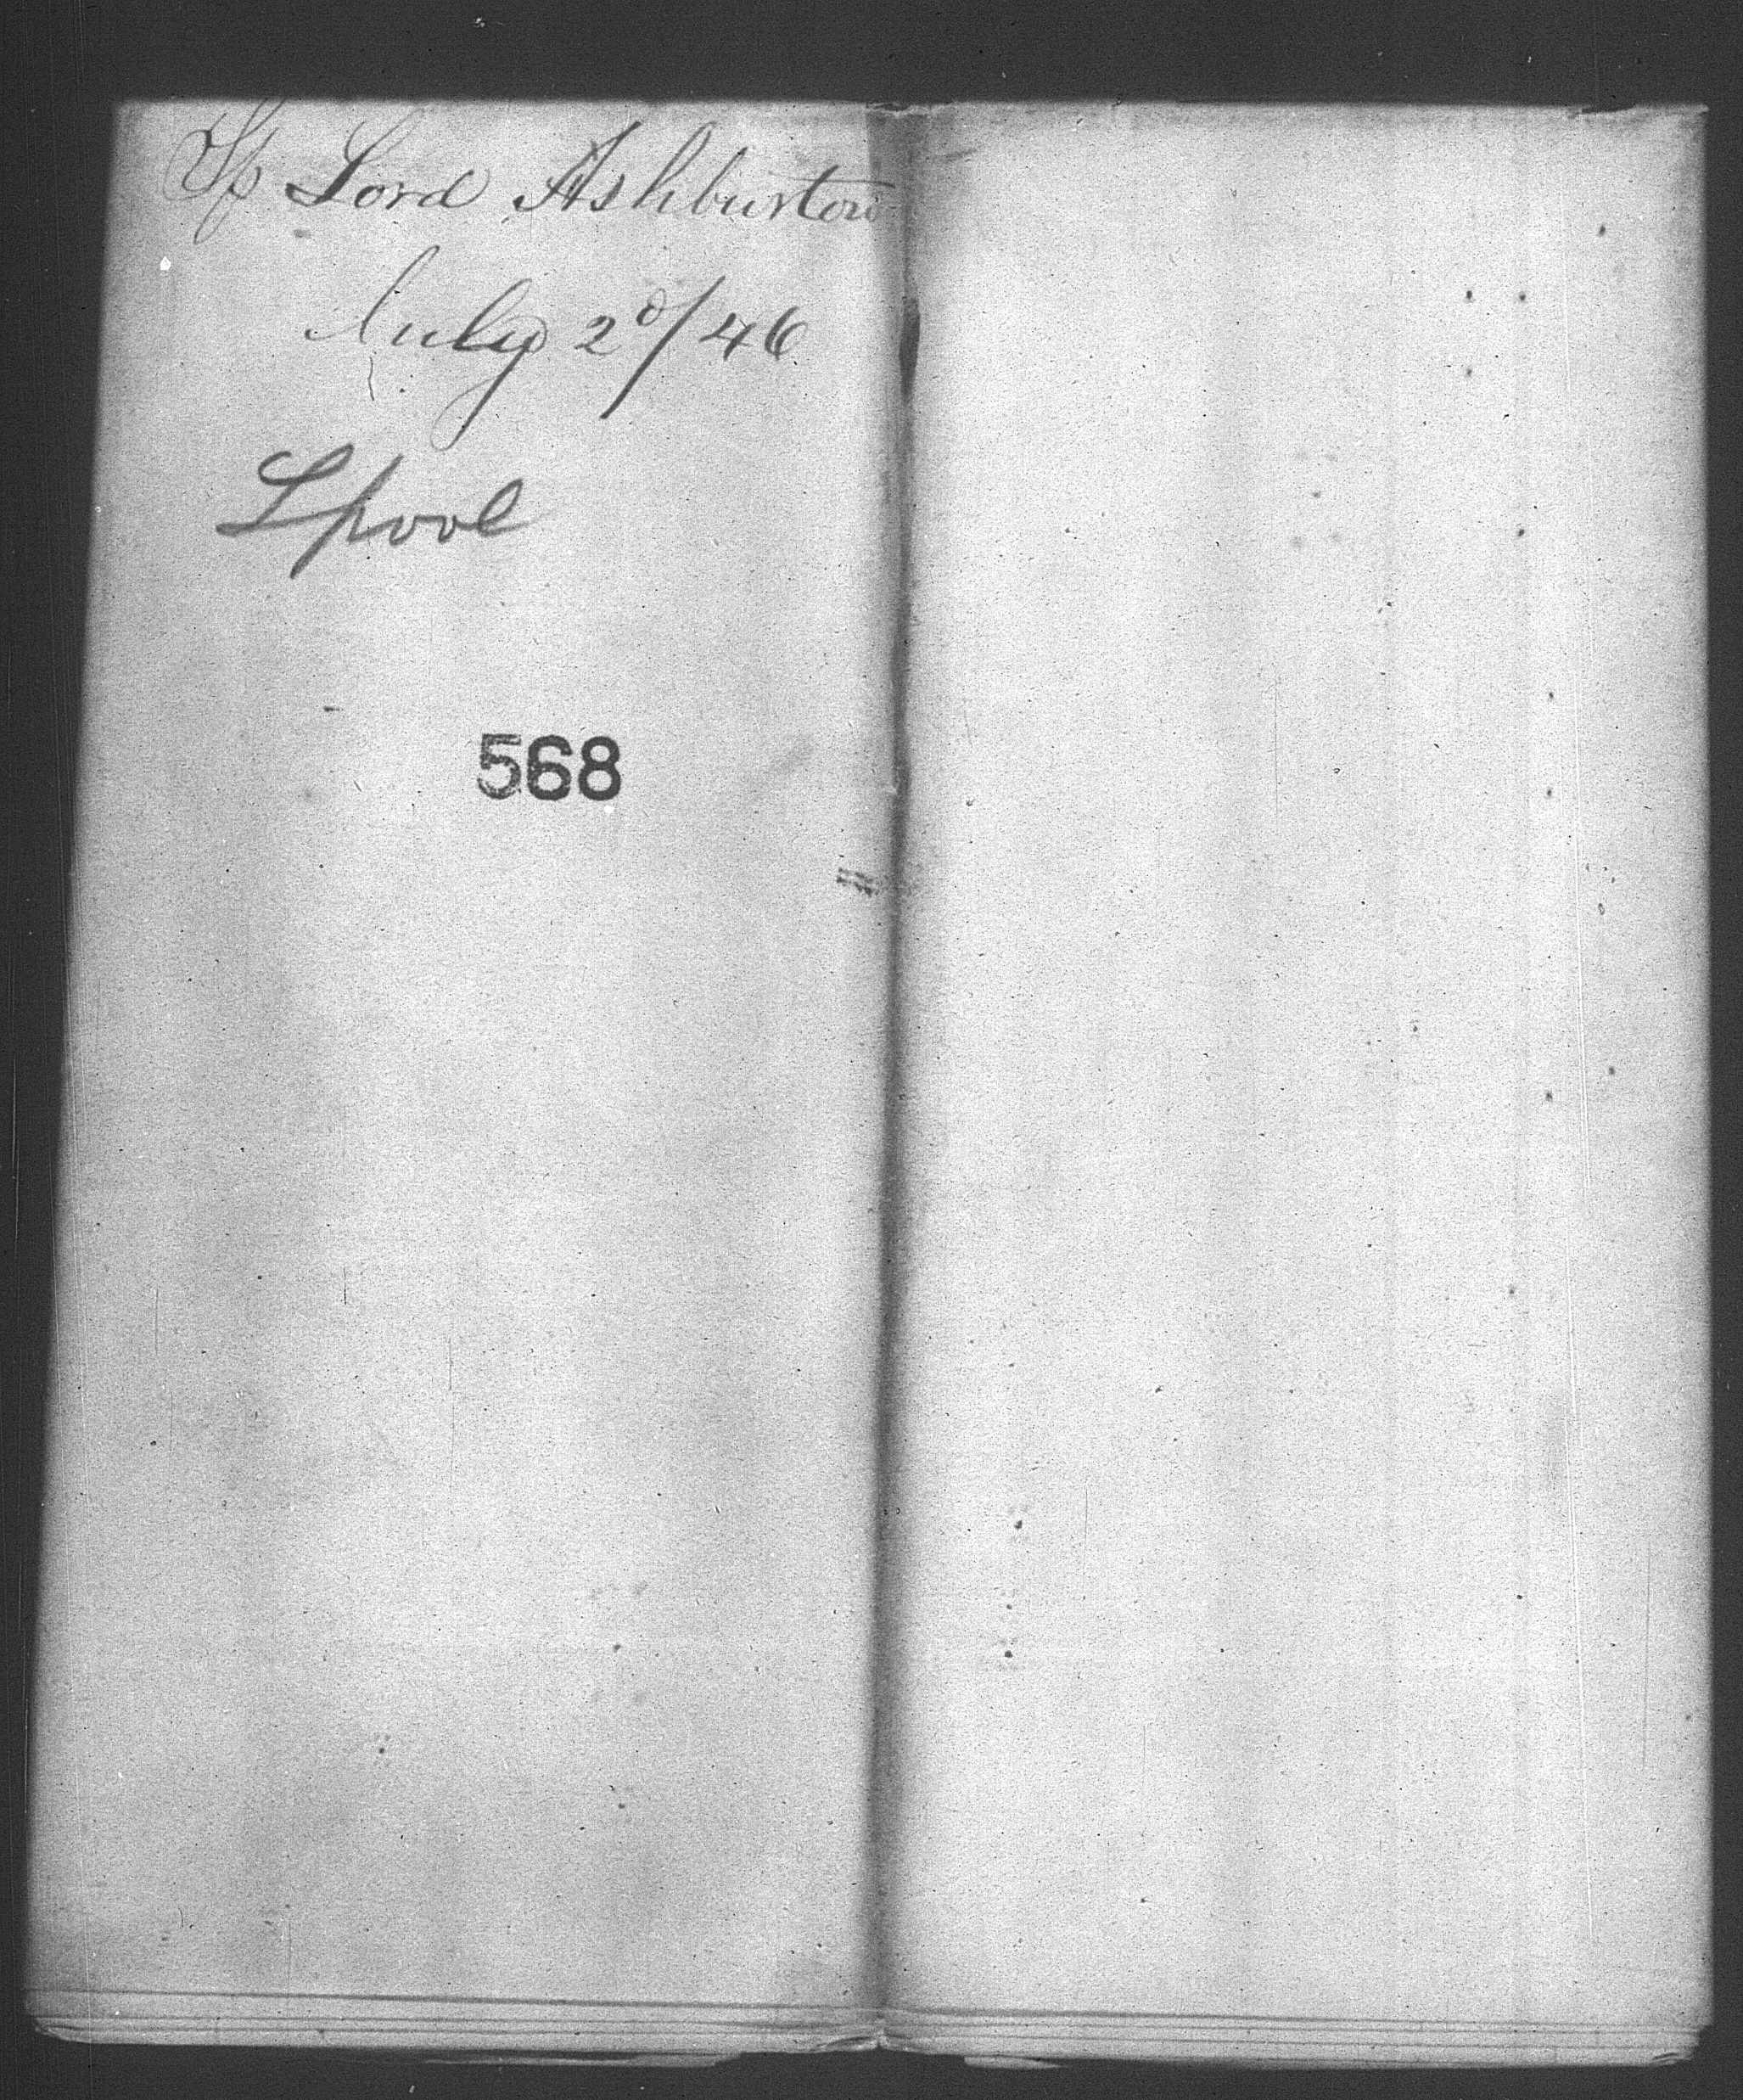 Sp Lord Ashburton
July 2d/46
Lpool
568